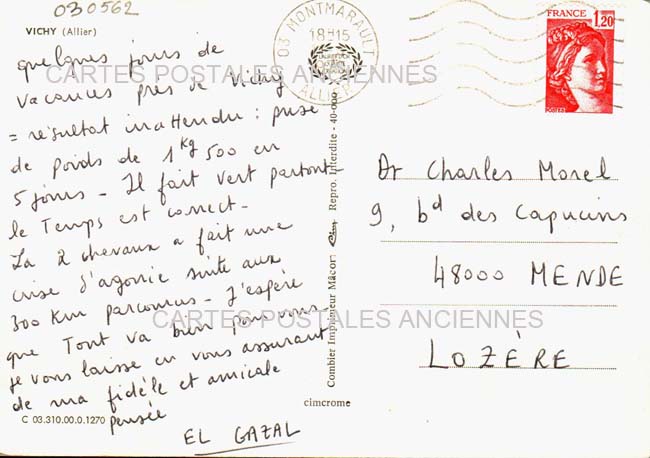 030562
VICHY (Allier)
quelques jours de
vacances près de Vichy
= résultat inattendu : prise
de poids de 1 kg 500 en
5 jours - Il fait vert partout -
le Temps est correct -
La 2 chevaux a fait une
crise d'agonie suite aux
300 km parcourus - J'espère
que Tout va bien pour vous
je vous laisse en vous assurant
de ma fidèle et amicale
pensée
EL GAZAL
C 03.310.00.0.1270
CARTES POSTALES ANCIENNES
CARTES POSTALES ANCIENNES
03 MONTMARAULT
18H15
ALLIER
FRANCE
1,20
Combier Imprimeur Mâcon
Repro. Interdite - 40-000
cimcrome
Dr Charles Morel
9, bd des Capucins
48000 MENDE
LOZÈRE